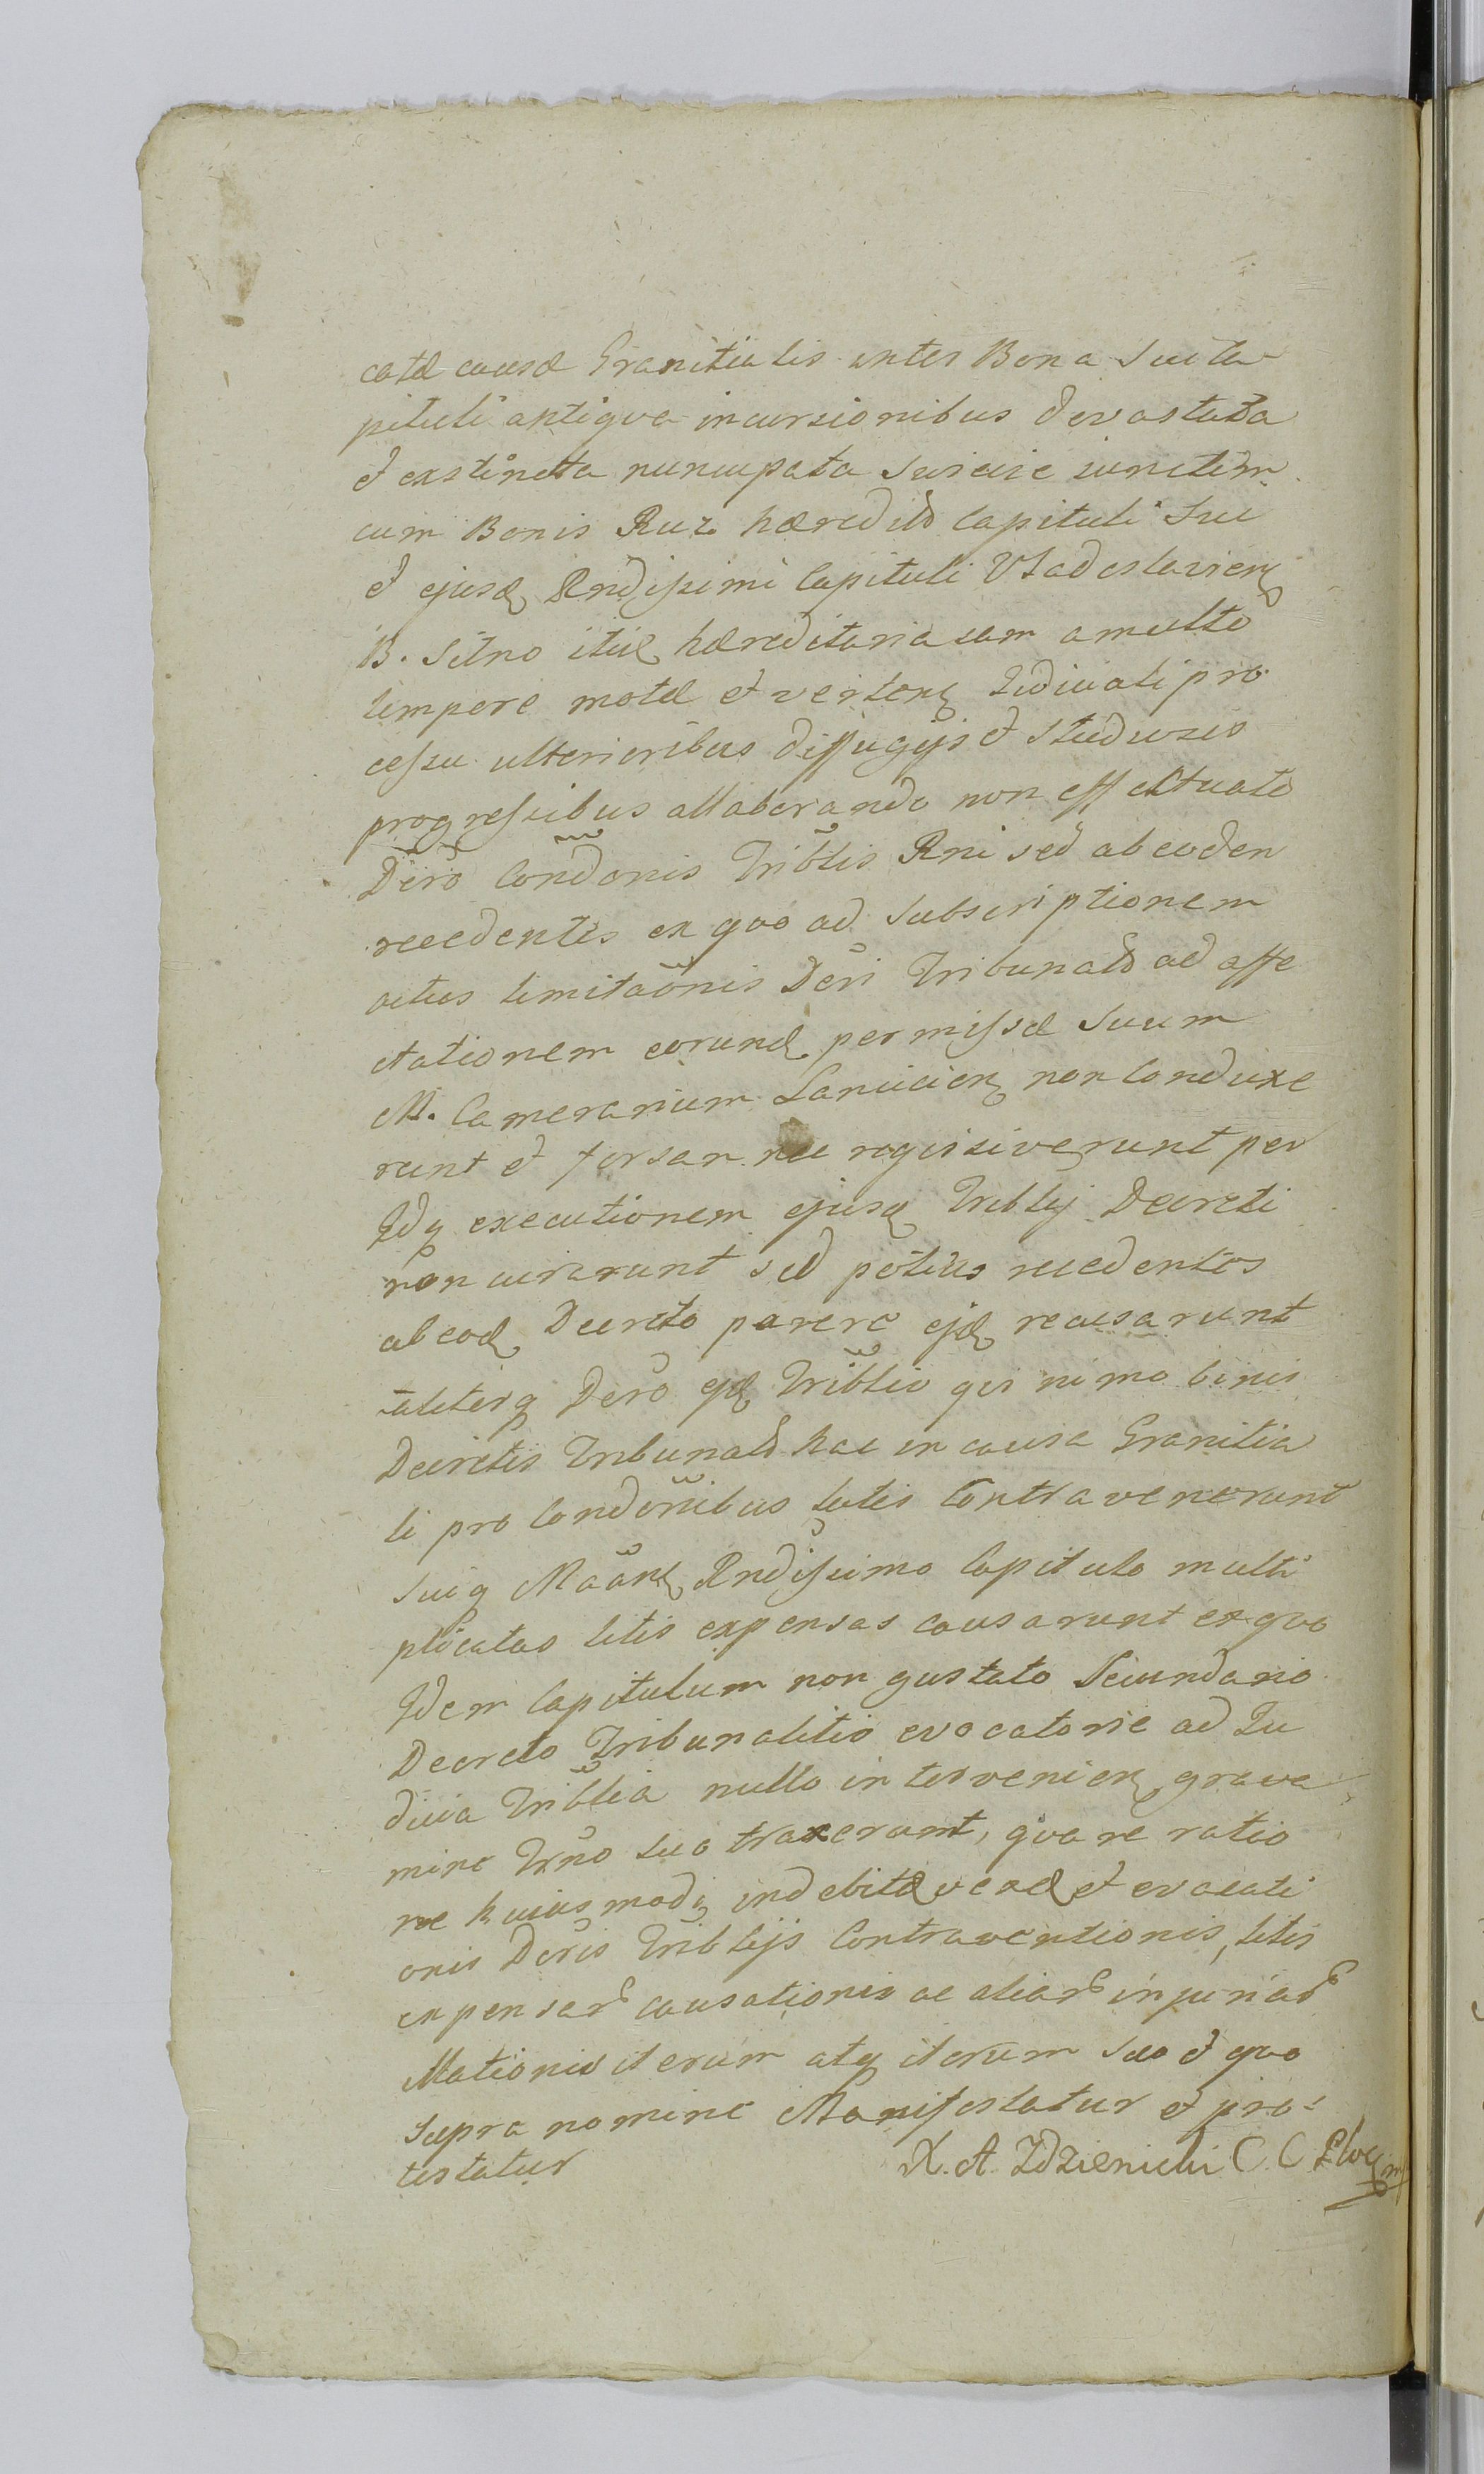 catæ causæ Granitialis inter Bona Sui Ca
pituli antiqva incursionibus devastata
et exstincta nuncupata Swiecie iunctim
cum Bonis Ruż hæredit̃ Capituli Sui
et ejusd Rndissimi Capituli Vladislavien
B. Sitno itid hæreditaria iam a multo
tempore motæ et verten Iudiciali pro
cessu ulterioribus diffugijs et studiosis
progressibus allaborando non effectuato
Dero Condonis Triblis Rni sed ab eodem
recedentes ex qvo ad Subscriptionem
actus limitaonis Deri Tribunal̃ ad affe
ctationem eorund permissæ Suum
M. Camerarium Lanicien non conduxe
runt et forsan nec reqvisiverunt per
Idq executionem ejusd Triblij Decreti
non curarunt sed potius recedentes
ab eod Decreto parere ejd recusarunt
taliterq Dero ejd Triblio qvinimo binis
Decretis Tribunal̃ hac in causa Granitia
li pro Condonibus latis contravenerunt
Suiq Maan Rndissimo Capitulo multi
plicatas litis expensas causarunt ex qvo
Idem Capitulum non gustato Secundario
Decreto Tribunalitio evocatorie ad Iu
dicia Triblia nullo intervenien grava
mine Trno suo traxerunt, qvare ratio
ne huiusmodi indebitæ vexæ et evocati
onis Deris Triblijs Contraventionis, litis
expensar̃ causationis ac aliar̃ injuriar̃
Mationis iterum atq iterum suo et qvo
supra nomine Manifestatur et pro=
testatur
X. A. Zdzienicki C. C. Plocm